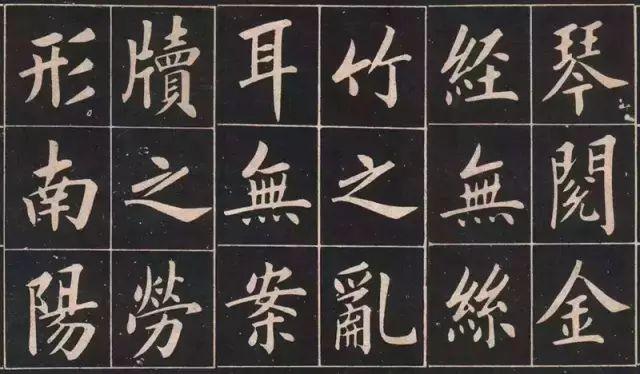 琴閱金
經無絲
竹之亂
耳無案
牘之勞
形南陽